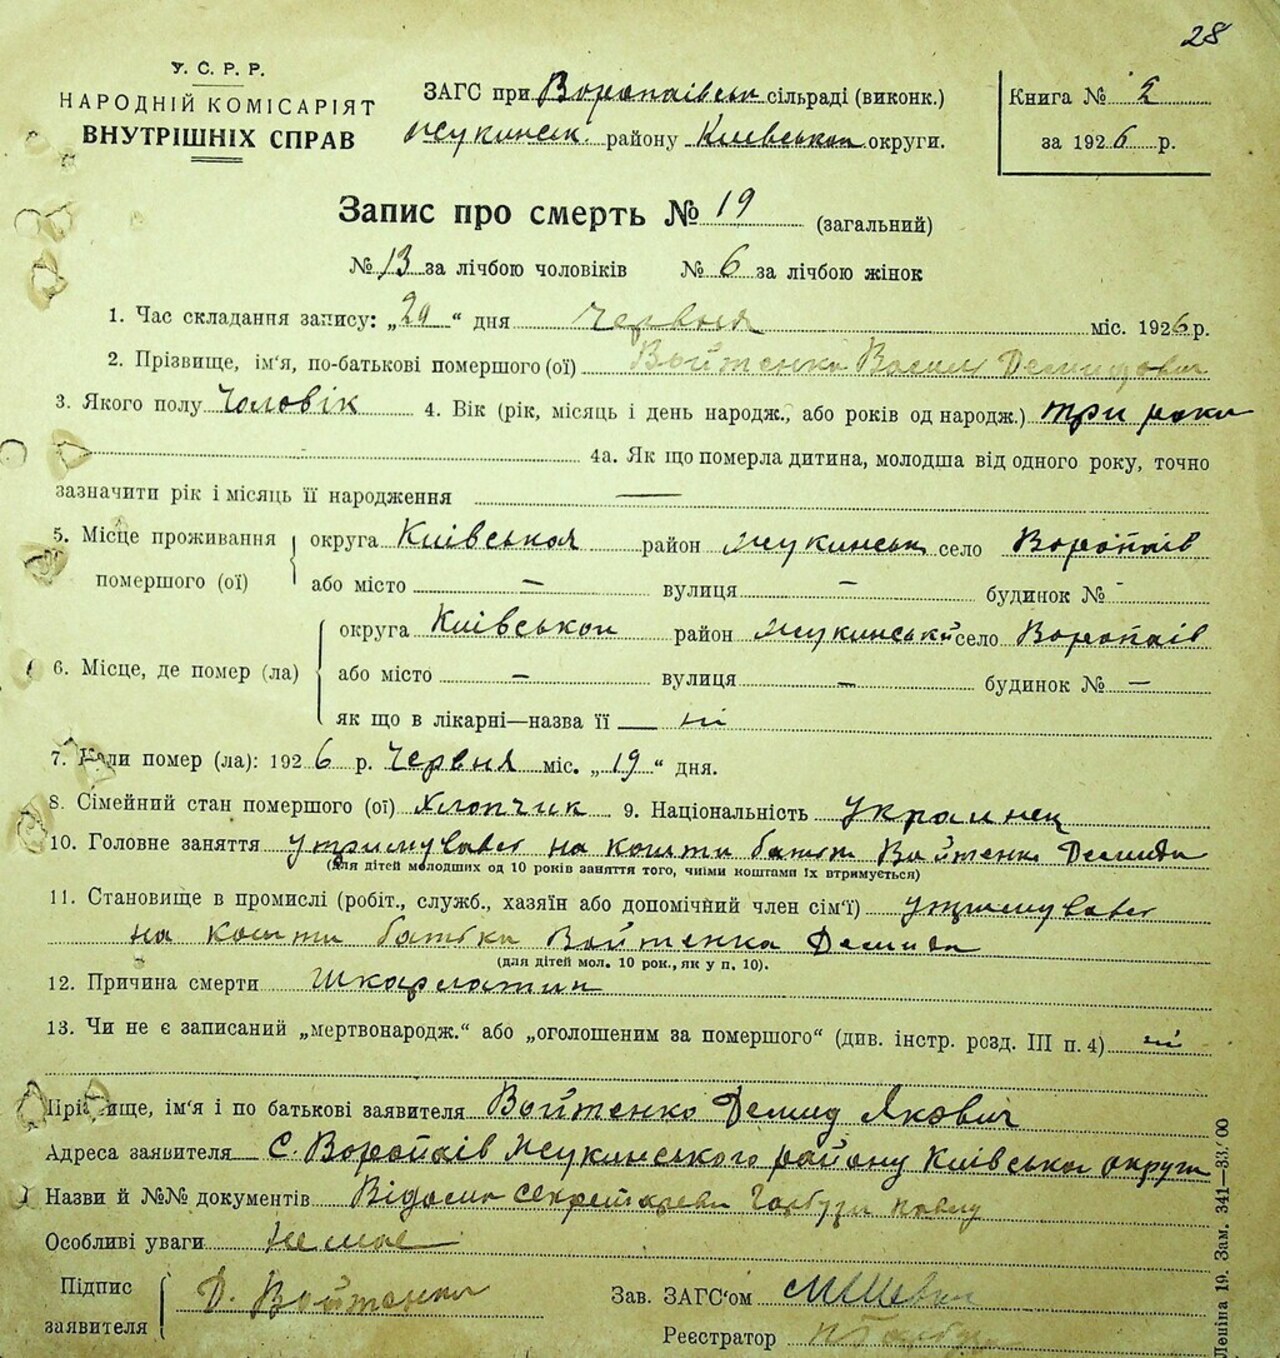 28
У. С. Р. Р.
НАРОДНІЙ КОМІСАРІЯТ
ВНУТРІШНІХ СПРАВ
ЗАГС при Воропаївськ сільраді (виконк.)
Жукинськ. району Київської округи.
Книга № 2
за 1926 р.
Запис про смерть № 19 (загальний)
№ 13 за лічбою чоловіків № 6 за лічбою жінок
1. Час складання запису: „20“ дня Червня міс. 1926 р.
2. Прізвище, ім'я, по-батькові помершого (ої) Войтенко Василь Демидович
3. Якого полу Чоловік 4. Вік (рік, місяць і день народж., або років од народж.) три роки
4а. Як що померла дитина, молодша від одного року, точно
зазначити рік і місяць її народження —
5. Місце проживання помершого (ої) округа Київська район Жукинськ село Воропаїв
або місто — вулиця — будинок № -
6. Місце, де помер (ла) округа Київської район Жукинський село Воропаїв
або місто — вулиця — будинок № —
як що в лікарні—назва її ні
7. Коли помер (ла): 1926 р. Червня міс. „19“ дня.
8. Сімейний стан помершого (ої) Хлопчик 9. Національність Украинец
10. Головне заняття утримувавсь на кошти батька Войтенка Демида
(для дітей молодших од 10 років заняття того, чиїми коштами їх втримується)
11. Становище в промислі (робіт., служб., хазяїн або допомічний член сім'ї) утримувавсь
на кошти батька Войтенка Демида
(для дітей мол. 10 рок., як у п. 10).
12. Причина смерти Шкарлатин
13. Чи не є записаний „мертвонародж.“ або „оголошеним за помершого“ (див. інстр. розд. III п. 4) ні
Прізвище, ім'я і по батькові заявителя Войтенко Демид Якович
Адреса заявителя С. Воропаїв Жукинського району Київської округи
Назви й №№ документів Відомий секретареві Гарбузу
Особливі уваги Немає
Підпис заявителя Д. Войтенко
Зав. ЗАГС'ом
Реєстратор
Леніна 19. Зам. 341—33/00